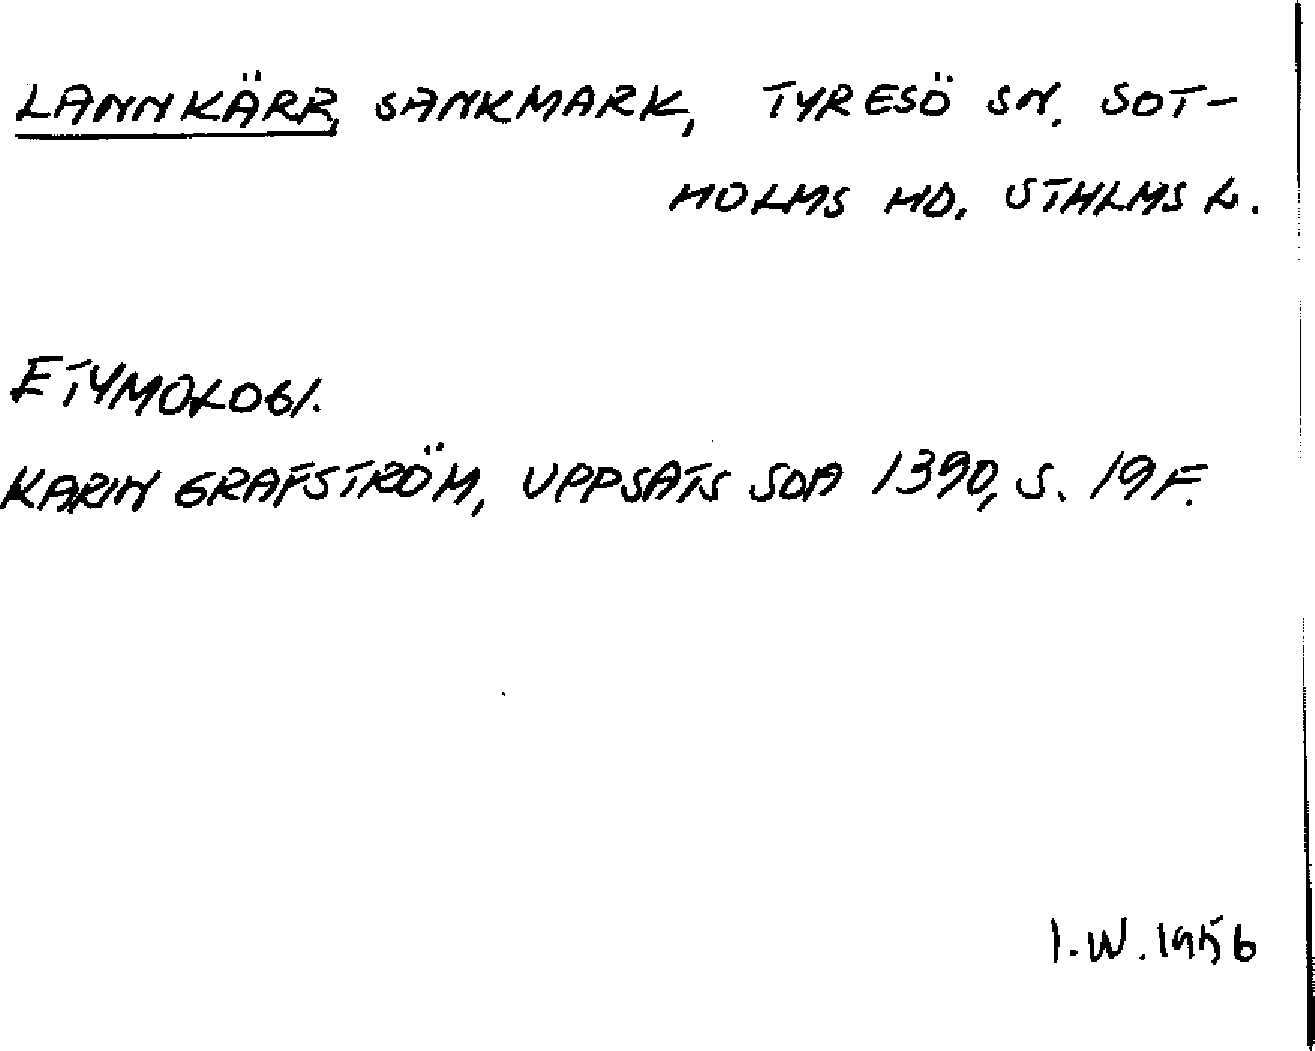 LANNKÄRR, SANKMARK, TYRESÖ SN. SOT-
HOLMS HD. STHLMS L.
ETYMOLOGI.
KARIN GRAFSTRÖM, UPPSATS SOA 1390, S. 19 F.
I.W. 1956